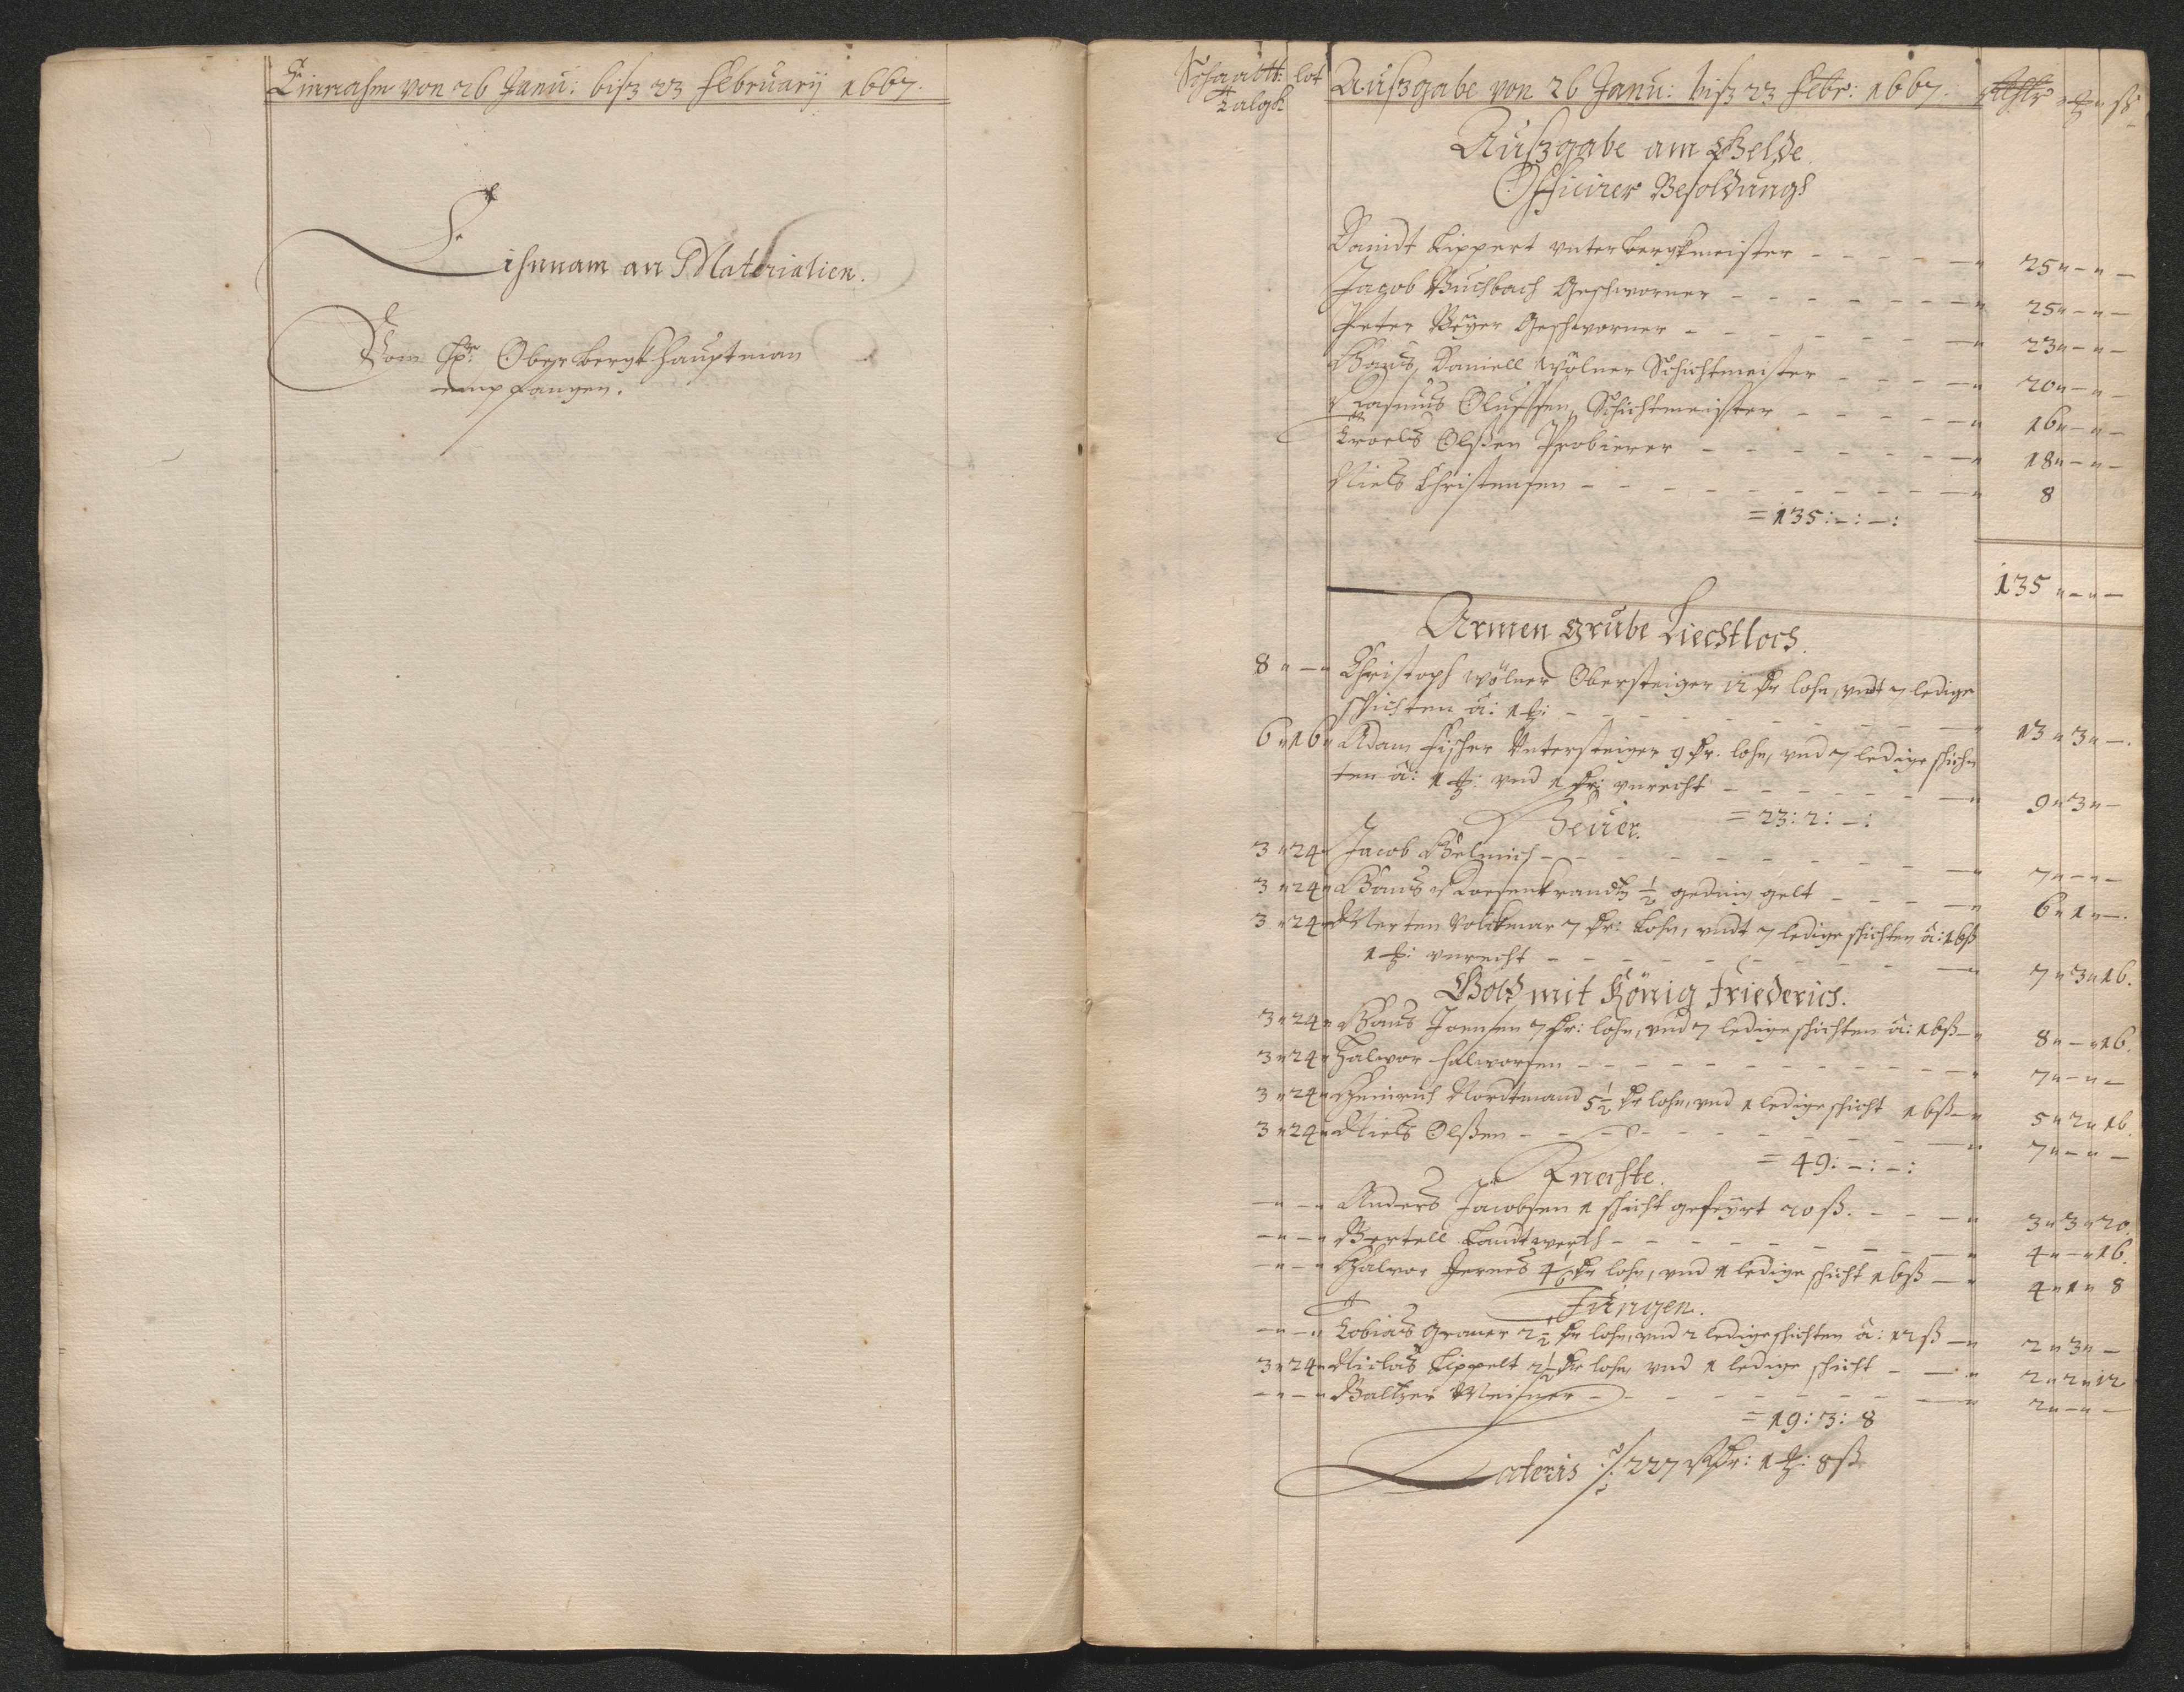 Einnahm von 26 Janu: bisz 23 February 1667.
Einnam an Materialien.
Vom Hr: Ober Berghauptman
empfangen.
Schaalt: lot
Talgk
Auszgabe von 26 Janu: bisz 23 Febr: 1667.
Auszgabe am Gelde
Officirer Besoldungs
Davidt Lippert unter bergkmeister - - - - 25 " - " -
Jacob Buchbach Geschworner - - - - 25 " - " -
Peter Beÿer Geschworner - - - - 23 " - " -
Hans Daniell Wölner Schichtmeister - - - 20 " - " -
Rasmus Olufssen Schichtmeister - - - - 16 " - " -
Troels Olßen Probierer - - - - 18 " - " -
Niels Christensen - - - - 8
= 135 : - : - :
135 " - " -
Armen grube Liechtloch.
8 " - " Christoph Wölner Obersteiger 12 Rr lohn, undt 7 ledige
schichten â: 1 #: - - - - 13 " 3 " - .
6 " 16 " Adam Fischer Untersteiger 9 Rr. lohn, und 7 ledige schich
ten â: 1 #: und 1 Rr: unrecht - - - - 9 " 3 " -
= 23 : 2 : - :
Heüer.
3 " 24 " Jacob Helmich - - - - 7 " - " -
3 " 24 " Hans Rosenkrandtz ½ geding gelt - - - 6 " 1 " - .
3 " 24 " Merten Volckmar 7 Rr: Lohn, undt 7 ledige schichten â: 16ß
1 #: unrecht - - - - 7 " 3 " 16.
Holtz mit König Friederich.
3 " 24 " Hans Joensen 7 Rr: lohn, und 7 ledige schichten â: 16ß 8 " - " 16.
3 " 24 " Halvor Halvorsen - - - - 7 " - " -
3 " 24 " Heinrich Nordtmand 5½ Rr lohn, und 1 ledige schicht 16ß 5 " 2 " 16.
3 " 24 " Niels Olßen - - - - 7 " - " -
= 49 : - : - :
Knechte.
- " - " Anders Jacobsen 1 schicht gefeÿrt 20ß. - - - 3 " 3 " 20.
- " - " Bertell Landtwerch - - - - 4 " - " 16.
- " - " Halvor Jernes 4 Rr lohn, und 1 ledige schicht 16ß 4 " 1 " 8
Jungen.
- " - " Tobias Graner 2½ Rr lohn, und 2 ledige schichten â: 12ß 2 " 3 " -
3 " 24 " Niclas Lippelt 2½ Rr lohn, und 1 ledige schicht - - 2 " 2 " 12
- " - " Baltzer Meisner - - - - 2 " - " -
= 19 : 3 : 8
Lateris 227 Rr: 1 #: 8ß